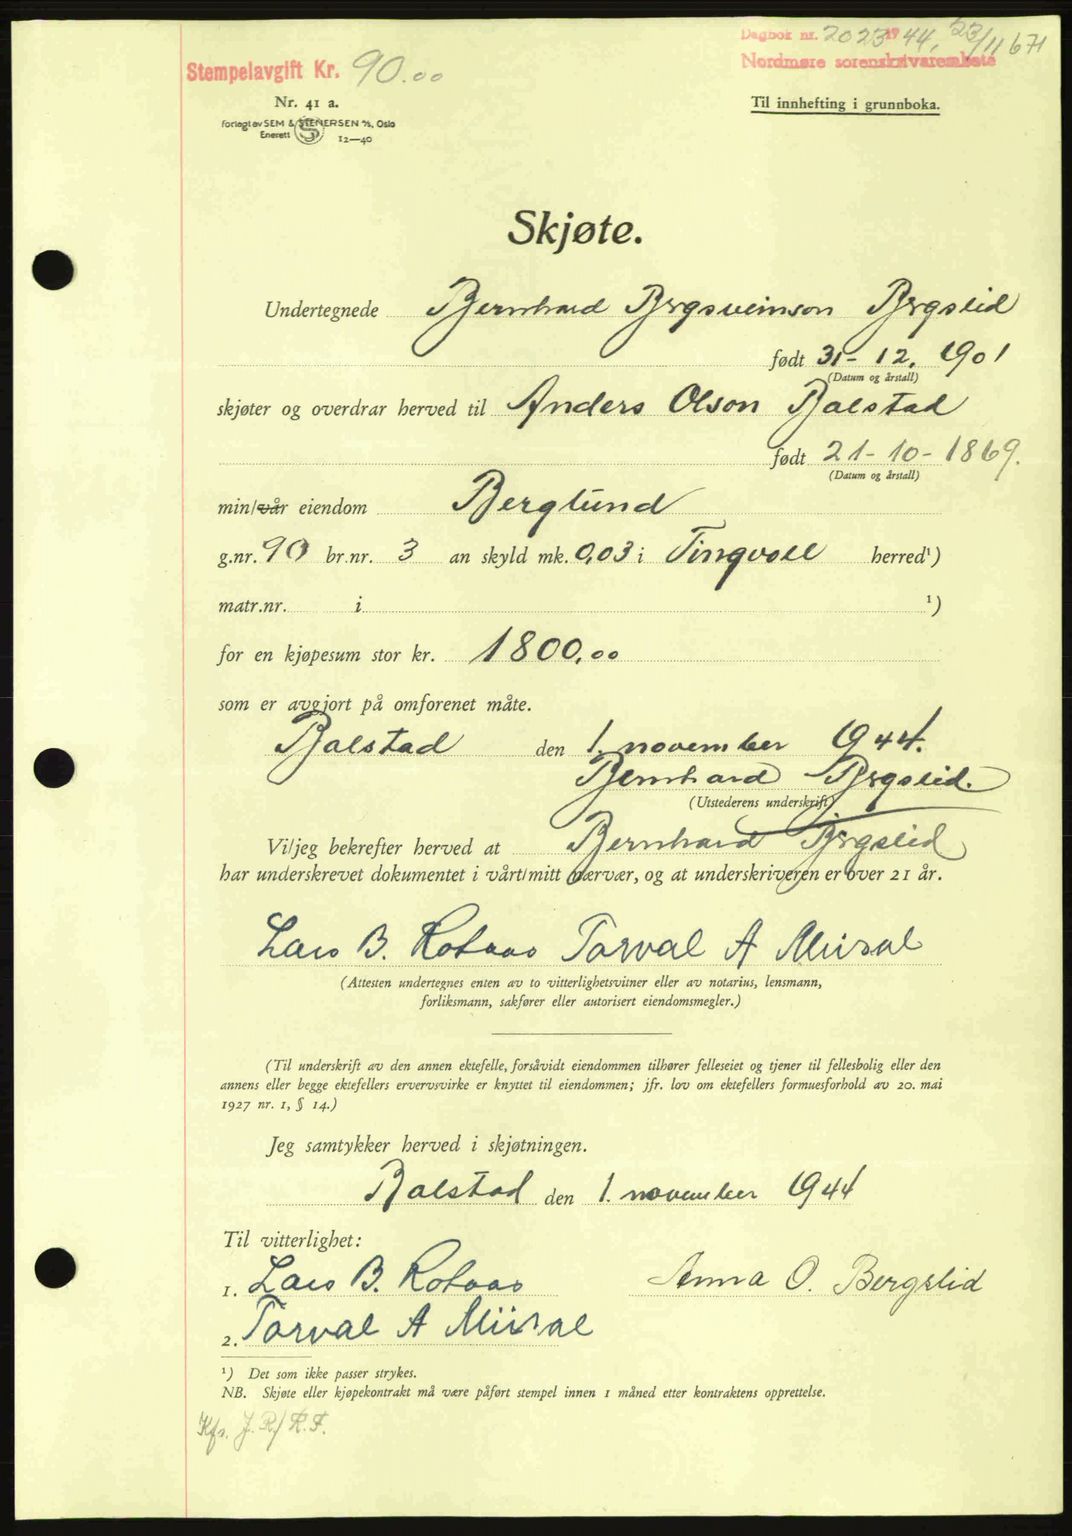 Dagbok nr. 2023 1944, 23/11 671
Nordmøre sorenskrivarembete
Stempelavgift Kr. 90.00
Nr. 41 a.
Til innhefting i grunnboka.
Forlagt av SEM & STENERSEN A/S, Oslo
Enerett S 12—40
Skjøte.
Undertegnede Bernhard Bergsveinson Bergslid
født 31 - 12. 1901
(Datum og årstall)
skjøter og overdrar herved til Anders Olson Balstad
født 21 - 10 - 1869.
(Datum og årstall)
min/vår eiendom Berglund
g.nr. 90 br.nr. 3 an skyld mk. 0,03 i Tingvoll herred¹)
matr.nr. i ¹)
for en kjøpesum stor kr. 1800,00
som er avgjort på omforenet måte.
Balstad den 1. november 1944.
Bernhard Bergslid.
(Utstederens underskrift)
Vi/jeg bekrefter herved at Bernhard Bergslid
har underskrevet dokumentet i vårt/mitt nærvær, og at underskriveren er over 21 år.
Lars B. Rotvao Torval A
(Attesten undertegnes enten av to vitterlighetsvitner eller av notarius, lensmann,
forliksmann, sakfører eller autorisert eiendomsmegler.)
(Til underskrift av den annen ektefelle, forsåvidt eiendommen tilhører felleseiet og tjener til fellesbolig eller den
annens eller begge ektefellers ervervsvirke er knyttet til eiendommen; jfr. lov om ektefellers formuesforhold av 20. mai
1927 nr. 1, § 14.)
Jeg samtykker herved i skjøtningen.
Balstad den 1. november 1944
Til vitterlighet:
1. Lars B. Rotvao Anna O. Bergslid
2. Torval A
¹) Det som ikke passer strykes.
NB. Skjøte eller kjøpekontrakt må være påført stempel innen 1 måned etter kontraktens opprettelse.
Kfr. J.R/ R.F.